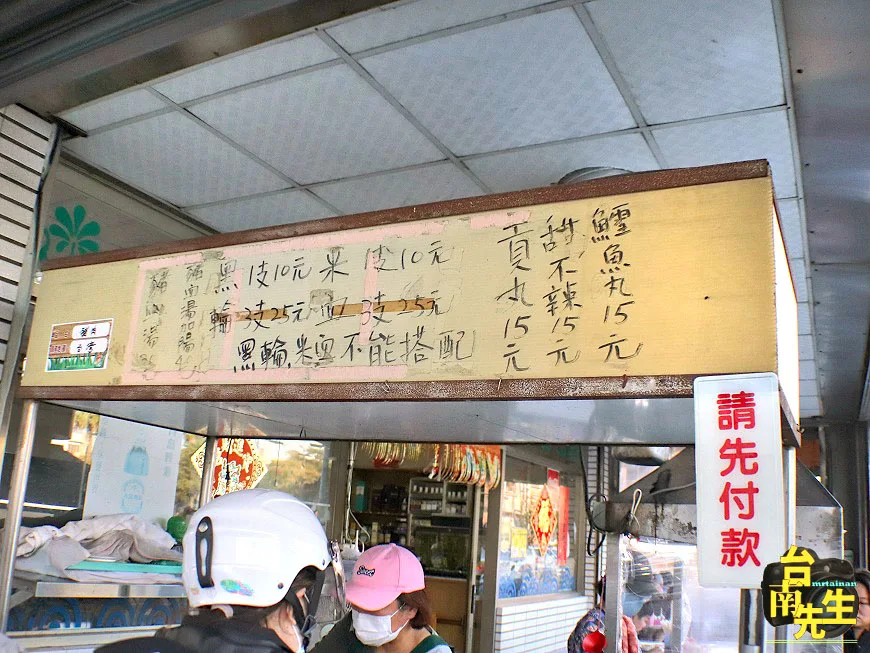 鱈魚丸15元
甜不辣15元
貢丸15元
黑輪
1支10元
3支25元
米血
1支10元
3支25元
黑輪米血不能搭配
請先付款
台南先生
mrtainan